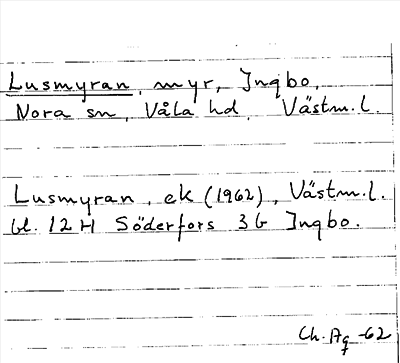 Lusmyran, myr, Ingbo,
Nora sn, Våla hd, Västm.l.
Lusmyran, ek (1962), Västm.l.
bl. 12 H Söderfors 3 G Ingbo.
Ch. Ag -62